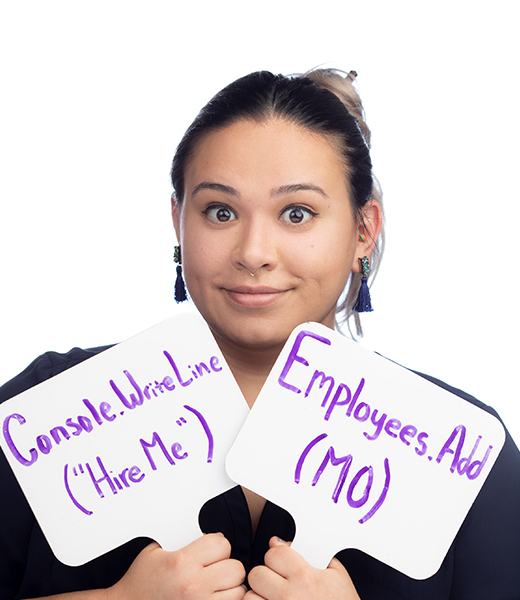 Console.WriteLine
("Hire Me")
Employees.Add
(MO)